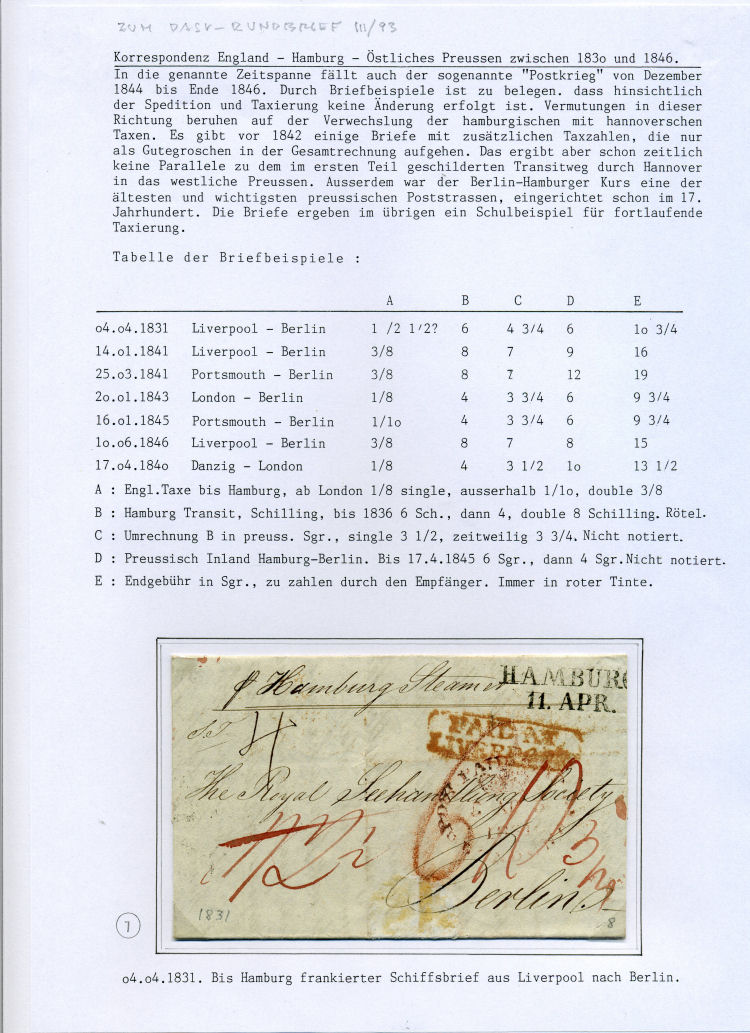 ZUM DASV-RUNDBRIEF III/93
Korrespondenz England - Hamburg - Östliches Preussen zwischen 183o und 1846.
In die genannte Zeitspanne fällt auch der sogenannte "Postkrieg" von Dezember
1844 bis Ende 1846. Durch Briefbeispiele ist zu belegen. dass hinsichtlich
der Spedition und Taxierung keine Änderung erfolgt ist. Vermutungen in dieser
Richtung beruhen auf der Verwechslung der hamburgischen mit hannoverschen
Taxen. Es gibt vor 1842 einige Briefe mit zusätzlichen Taxzahlen, die nur
als Gutegroschen in der Gesamtrechnung aufgehen. Das ergibt aber schon zeitlich
keine Parallele zu dem im ersten Teil geschilderten Transitweg durch Hannover
in das westliche Preussen. Ausserdem war der Berlin-Hamburger Kurs eine der
ältesten und wichtigsten preussischen Poststrassen, eingerichtet schon im 17.
Jahrhundert. Die Briefe ergeben im übrigen ein Schulbeispiel für fortlaufende
Taxierung.
Tabelle der Briefbeispiele :
A B C D E
o4.o4.1831 Liverpool - Berlin 1 /2 1'2? 6 4 3/4 6 1o 3/4
14.o1.1841 Liverpool - Berlin 3/8 8 7 9 16
25.o3.1841 Portsmouth - Berlin 3/8 8 7 12 19
2o.o1.1843 London - Berlin 1/8 4 3 3/4 6 9 3/4
16.o1.1845 Portsmouth - Berlin 1/1o 4 3 3/4 6 9 3/4
1o.o6.1846 Liverpool - Berlin 3/8 8 7 8 15
17.o4.184o Danzig - London 1/8 4 3 1/2 1o 13 1/2
A : Engl.Taxe bis Hamburg, ab London 1/8 single, ausserhalb 1/1o, double 3/8
B : Hamburg Transit, Schilling, bis 1836 6 Sch., dann 4, double 8 Schilling. Rötel.
C : Umrechnung B in preuss. Sgr., single 3 1/2, zeitweilig 3 3/4. Nicht notiert.
D : Preussisch Inland Hamburg-Berlin. Bis 17.4.1845 6 Sgr., dann 4 Sgr.Nicht notiert.
E : Endgebühr in Sgr., zu zahlen durch den Empfänger. Immer in roter Tinte.
HAMBURG
11. APR.
p Hamburg Steamer
PAID AT
LIVERPOOL
The Royal Seehandlung Society
6
Berlin
1831
8
1
o4.o4.1831. Bis Hamburg frankierter Schiffsbrief aus Liverpool nach Berlin.